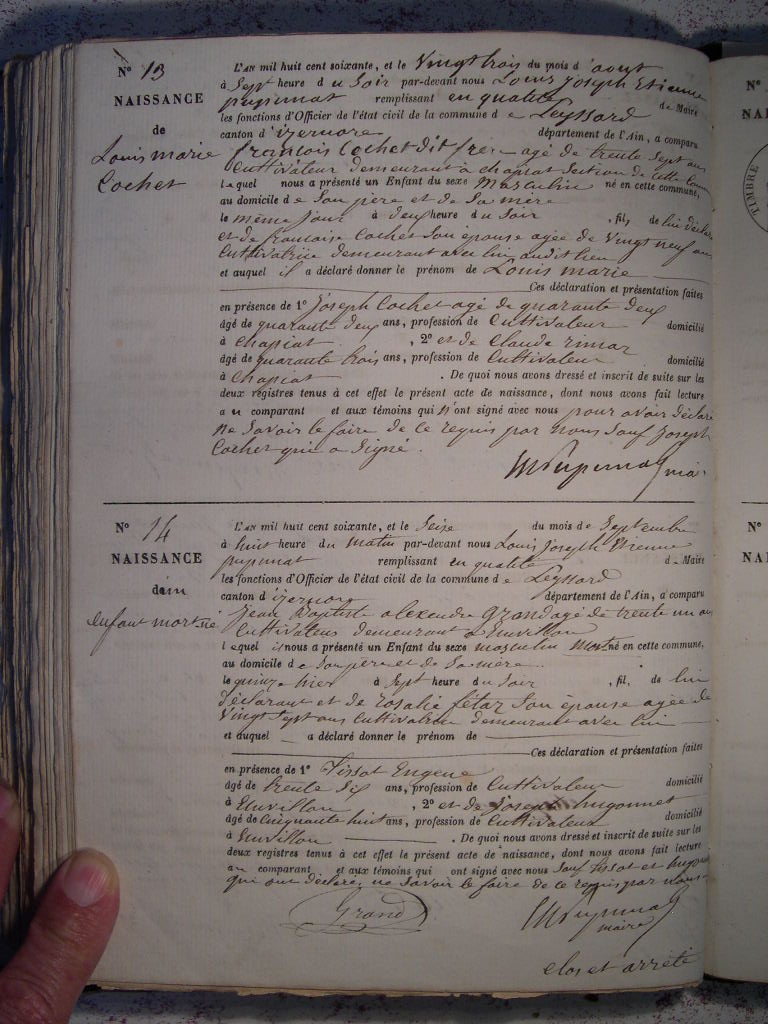 N° 13
NAISSANCE
de
Louis marie
Cochet
L'AN mil huit cent soixante, et le Vingt trois du mois d'aout
à Sept heure du Soir par-devant nous Louis Joseph Etienne
pupunat remplissant en qualité de Maire
les fonctions d'Officier de l'état civil de la commune de Leyssard
canton d'izernore département de l'Ain, a comparu
françois Cochet dit frere agé de trente Sept ans
Cultivateur demeurant à chapiat Section de cette Comm
lequel nous a présenté un Enfant du sexe masculin né en cette commune,
au domicile de Son père et de Sa mère
le même jour à deux heure du Soir , fils de lui déclar
et de françoise Cochet Son épouse agée de Vingt neuf ans
Cultivatrice demeurant avec lui audit lieu
et auquel il a déclaré donner le prénom de Louis marie
Ces déclaration et présentation faites
en présence de 1° Joseph Cochet agé de quarante deux
âgé de quarante deux ans, profession de Cultivateur domicilié
à Chapiat , 2° et de Claude rimaz
âgé de quarante trois ans, profession de Cultivateur domicilié
à Chapiat . De quoi nous avons dressé et inscrit de suite sur les
deux registres tenus à cet effet le présent acte de naissance, dont nous avons fait lecture
au comparant et aux témoins qui n'ont signé avec nous pour avoir déclaré
ne Savoir le faire de ce requis par nous Sauf Joseph
Cochet qui a Signé.
Pupunat mai
N° 14
NAISSANCE
d'un
enfant mort né
L'AN mil huit cent soixante, et le Seize du mois de Septembre
à huit heure du matin par-devant nous Louis Joseph Etienne
pupunat remplissant en qualité de Maire
les fonctions d'Officier de l'état civil de la commune de Leyssard
canton d'izernore département de l'Ain, a comparu
Jean Baptiste alexendre grand agé de trente un ans
Cultivateur demeurant à Enuvillon
lequel il nous a présenté un Enfant du sexe masculin Mort né en cette commune,
au domicile de Son père et de Sa mère
le quinze hier à Sept heure du Soir , fil, de lui
déclarant et de rosalie fétaz Son épouse agée de
Vingt Sept ans Cultivatrice demeurant avec lui
et auquel a déclaré donner le prénom de
Ces déclaration et présentation faites
en présence de 1° Tissot Eugene
âgé de trente Six ans, profession de Cultivateur domicilié
à Enuvillon , 2° et de Joseph hugonnet
âgé de Cinquante huit ans, profession de Cultivateur domicilié
à Enuvillon . De quoi nous avons dressé et inscrit de suite sur les
deux registres tenus à cet effet le présent acte de naissance, dont nous avons fait lecture
au comparant et aux témoins qui ont signé avec nous Sauf tissot et hugon
qui ont déclaré ne Savoir le faire de ce requis par nous
Grand
Pupunat
maire
clos et arrêté
N°
NAI
TIMBRE
N°
NAI